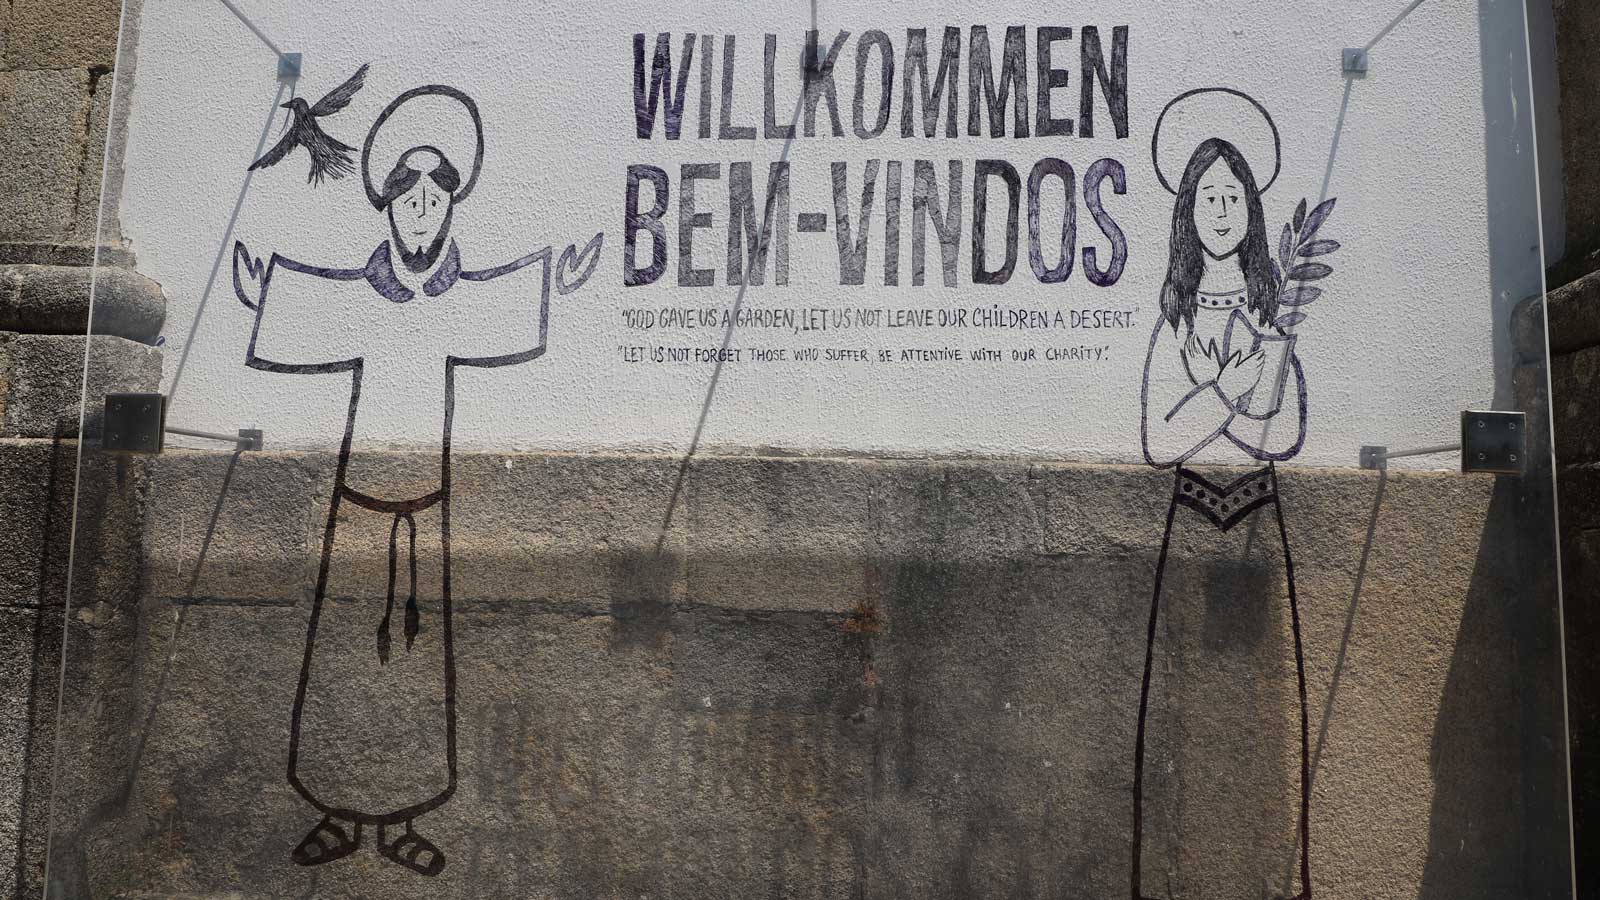 WILLKOMMEN
BEM-VINDOS
"GOD GAVE US A GARDEN, LET US NOT LEAVE OUR CHILDREN A DESERT."
"LET US NOT FORGET THOSE WHO SUFFER, BE ATTENTIVE WITH OUR CHARITY."